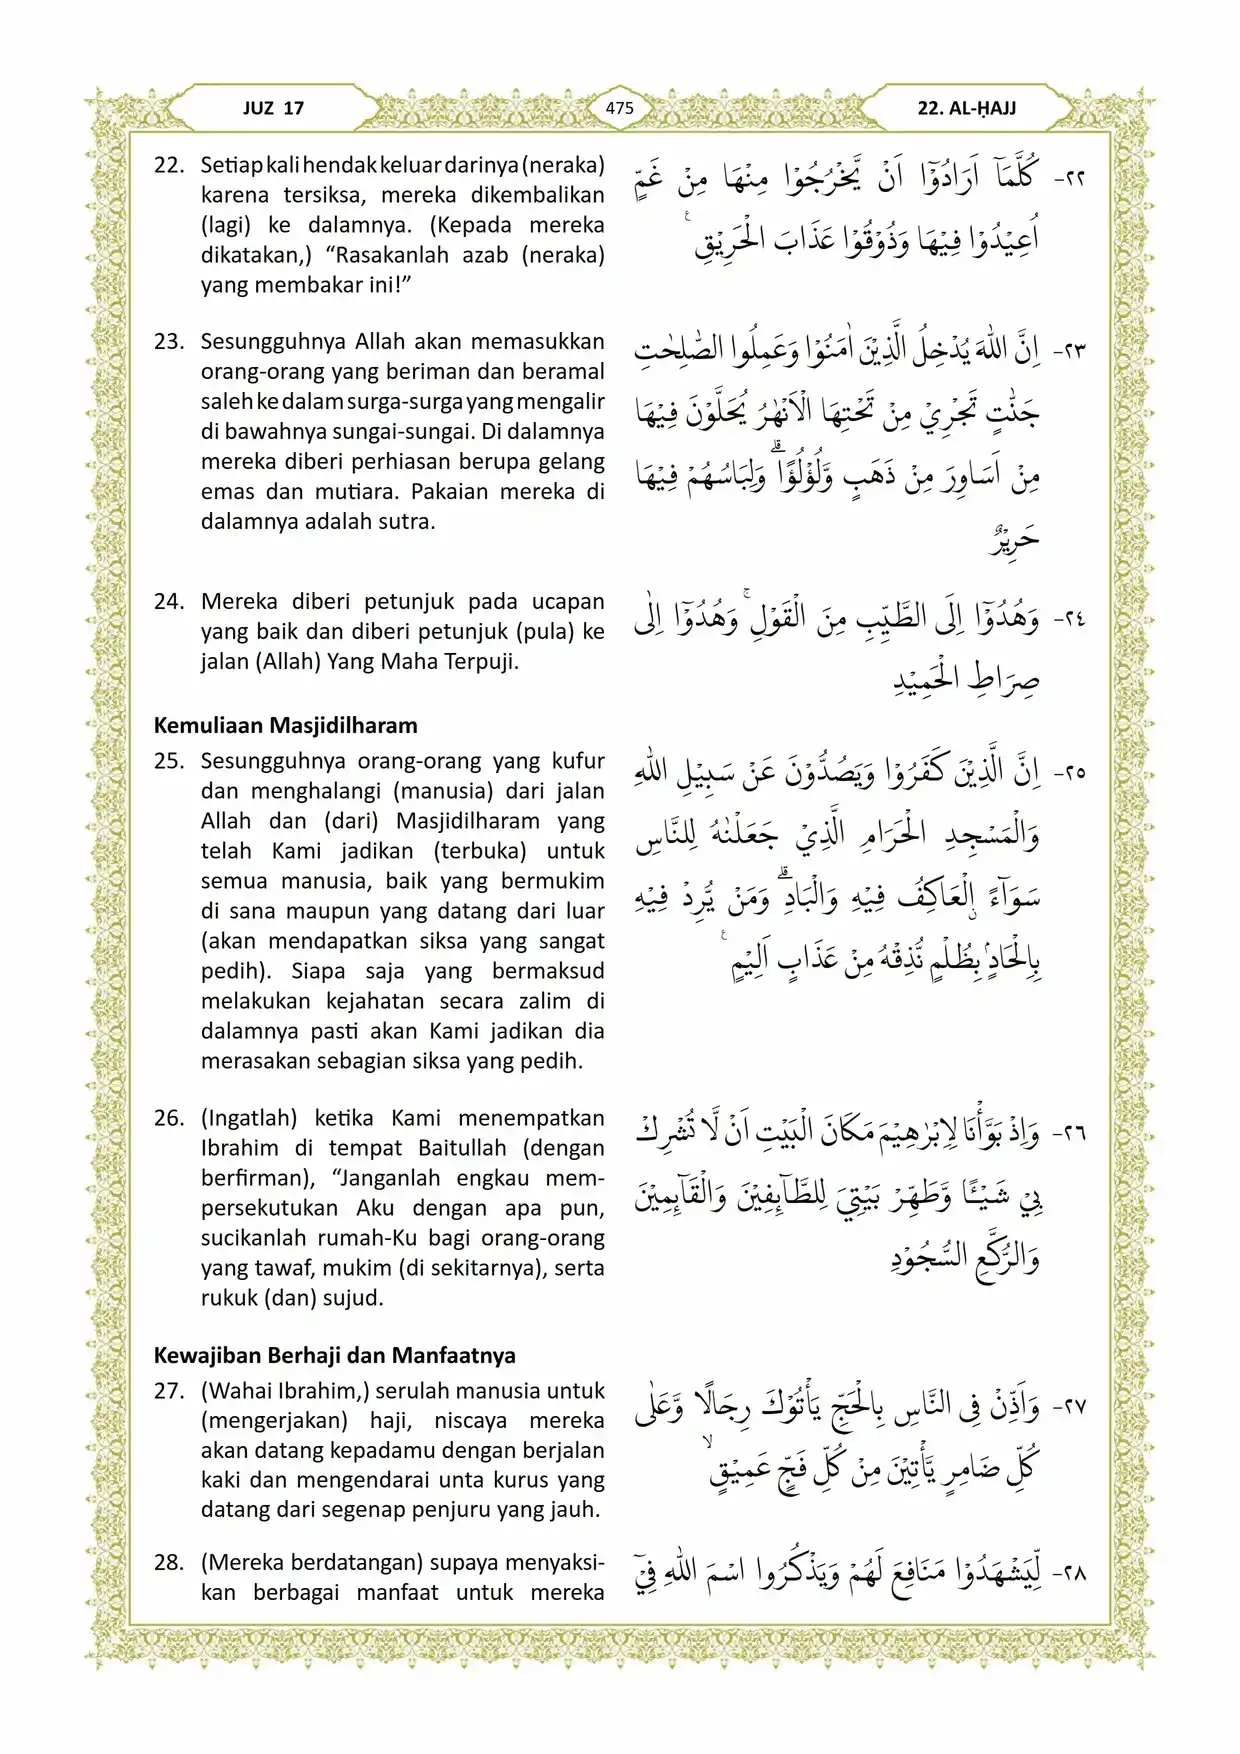 JUZ 17
475
22. AL-ḤAJJ
22. Setiap kali hendak keluar darinya (neraka)
karena tersiksa, mereka dikembalikan
(lagi) ke dalamnya. (Kepada mereka
dikatakan,) “Rasakanlah azab (neraka)
yang membakar ini!”
٢٢- كُلَّمَآ اَرَادُوْٓا اَنْ يَّخْرُجُوْا مِنْهَا مِنْ غَمٍّ
اُعِيْدُوْا فِيْهَا وَذُوْقُوْا عَذَابَ الْحَرِيْقِ ࣖ
23. Sesungguhnya Allah akan memasukkan
orang-orang yang beriman dan beramal
saleh ke dalam surga-surga yang mengalir
di bawahnya sungai-sungai. Di dalamnya
mereka diberi perhiasan berupa gelang
emas dan mutiara. Pakaian mereka di
dalamnya adalah sutra.
٢٣- اِنَّ اللّٰهَ يُدْخِلُ الَّذِيْنَ اٰمَنُوْا وَعَمِلُوا الصّٰلِحٰتِ
جَنّٰتٍ تَجْرِيْ مِنْ تَحْتِهَا الْاَنْهٰرُ يُحَلَّوْنَ فِيْهَا
مِنْ اَسَاوِرَ مِنْ ذَهَبٍ وَّلُؤْلُؤًاۗ وَلِبَاسُهُمْ فِيْهَا
حَرِيْرٌ
24. Mereka diberi petunjuk pada ucapan
yang baik dan diberi petunjuk (pula) ke
jalan (Allah) Yang Maha Terpuji.
٢٤- وَهُدُوْٓا اِلَى الطَّيِّبِ مِنَ الْقَوْلِۚ وَهُدُوْٓا اِلٰى
صِرَاطِ الْحَمِيْدِ
Kemuliaan Masjidilharam
25. Sesungguhnya orang-orang yang kufur
dan menghalangi (manusia) dari jalan
Allah dan (dari) Masjidilharam yang
telah Kami jadikan (terbuka) untuk
semua manusia, baik yang bermukim
di sana maupun yang datang dari luar
(akan mendapatkan siksa yang sangat
pedih). Siapa saja yang bermaksud
melakukan kejahatan secara zalim di
dalamnya pasti akan Kami jadikan dia
merasakan sebagian siksa yang pedih.
٢٥- اِنَّ الَّذِيْنَ كَفَرُوْا وَيَصُدُّوْنَ عَنْ سَبِيْلِ اللّٰهِ
وَالْمَسْجِدِ الْحَرَامِ الَّذِيْ جَعَلْنٰهُ لِلنَّاسِ
سَوَاۤءً ۨالْعَاكِفُ فِيْهِ وَالْبَادِۗ وَمَنْ يُّرِدْ فِيْهِ
بِاِلْحَادٍۢ بِظُلْمٍ نُّذِقْهُ مِنْ عَذَابٍ اَلِيْمٍ ࣖ
26. (Ingatlah) ketika Kami menempatkan
Ibrahim di tempat Baitullah (dengan
berfirman), “Janganlah engkau mem-
persekutukan Aku dengan apa pun,
sucikanlah rumah-Ku bagi orang-orang
yang tawaf, mukim (di sekitarnya), serta
rukuk (dan) sujud.
٢٦- وَاِذْ بَوَّأْنَا لِاِبْرٰهِيْمَ مَكَانَ الْبَيْتِ اَنْ لَّا تُشْرِكْ
بِيْ شَيْـًٔا وَّطَهِّرْ بَيْتِيَ لِلطَّاۤىِٕفِيْنَ وَالْقَاۤىِٕمِيْنَ
وَالرُّكَّعِ السُّجُوْدِ
Kewajiban Berhaji dan Manfaatnya
27. (Wahai Ibrahim,) serulah manusia untuk
(mengerjakan) haji, niscaya mereka
akan datang kepadamu dengan berjalan
kaki dan mengendarai unta kurus yang
datang dari segenap penjuru yang jauh.
٢٧- وَاَذِّنْ فِى النَّاسِ بِالْحَجِّ يَأْتُوْكَ رِجَالًا وَّعَلٰى
كُلِّ ضَامِرٍ يَّأْتِيْنَ مِنْ كُلِّ فَجٍّ عَمِيْقٍۙ
28. (Mereka berdatangan) supaya menyaksi-
kan berbagai manfaat untuk mereka
٢٨- لِّيَشْهَدُوْا مَنَافِعَ لَهُمْ وَيَذْكُرُوا اسْمَ اللّٰهِ فِيْٓ